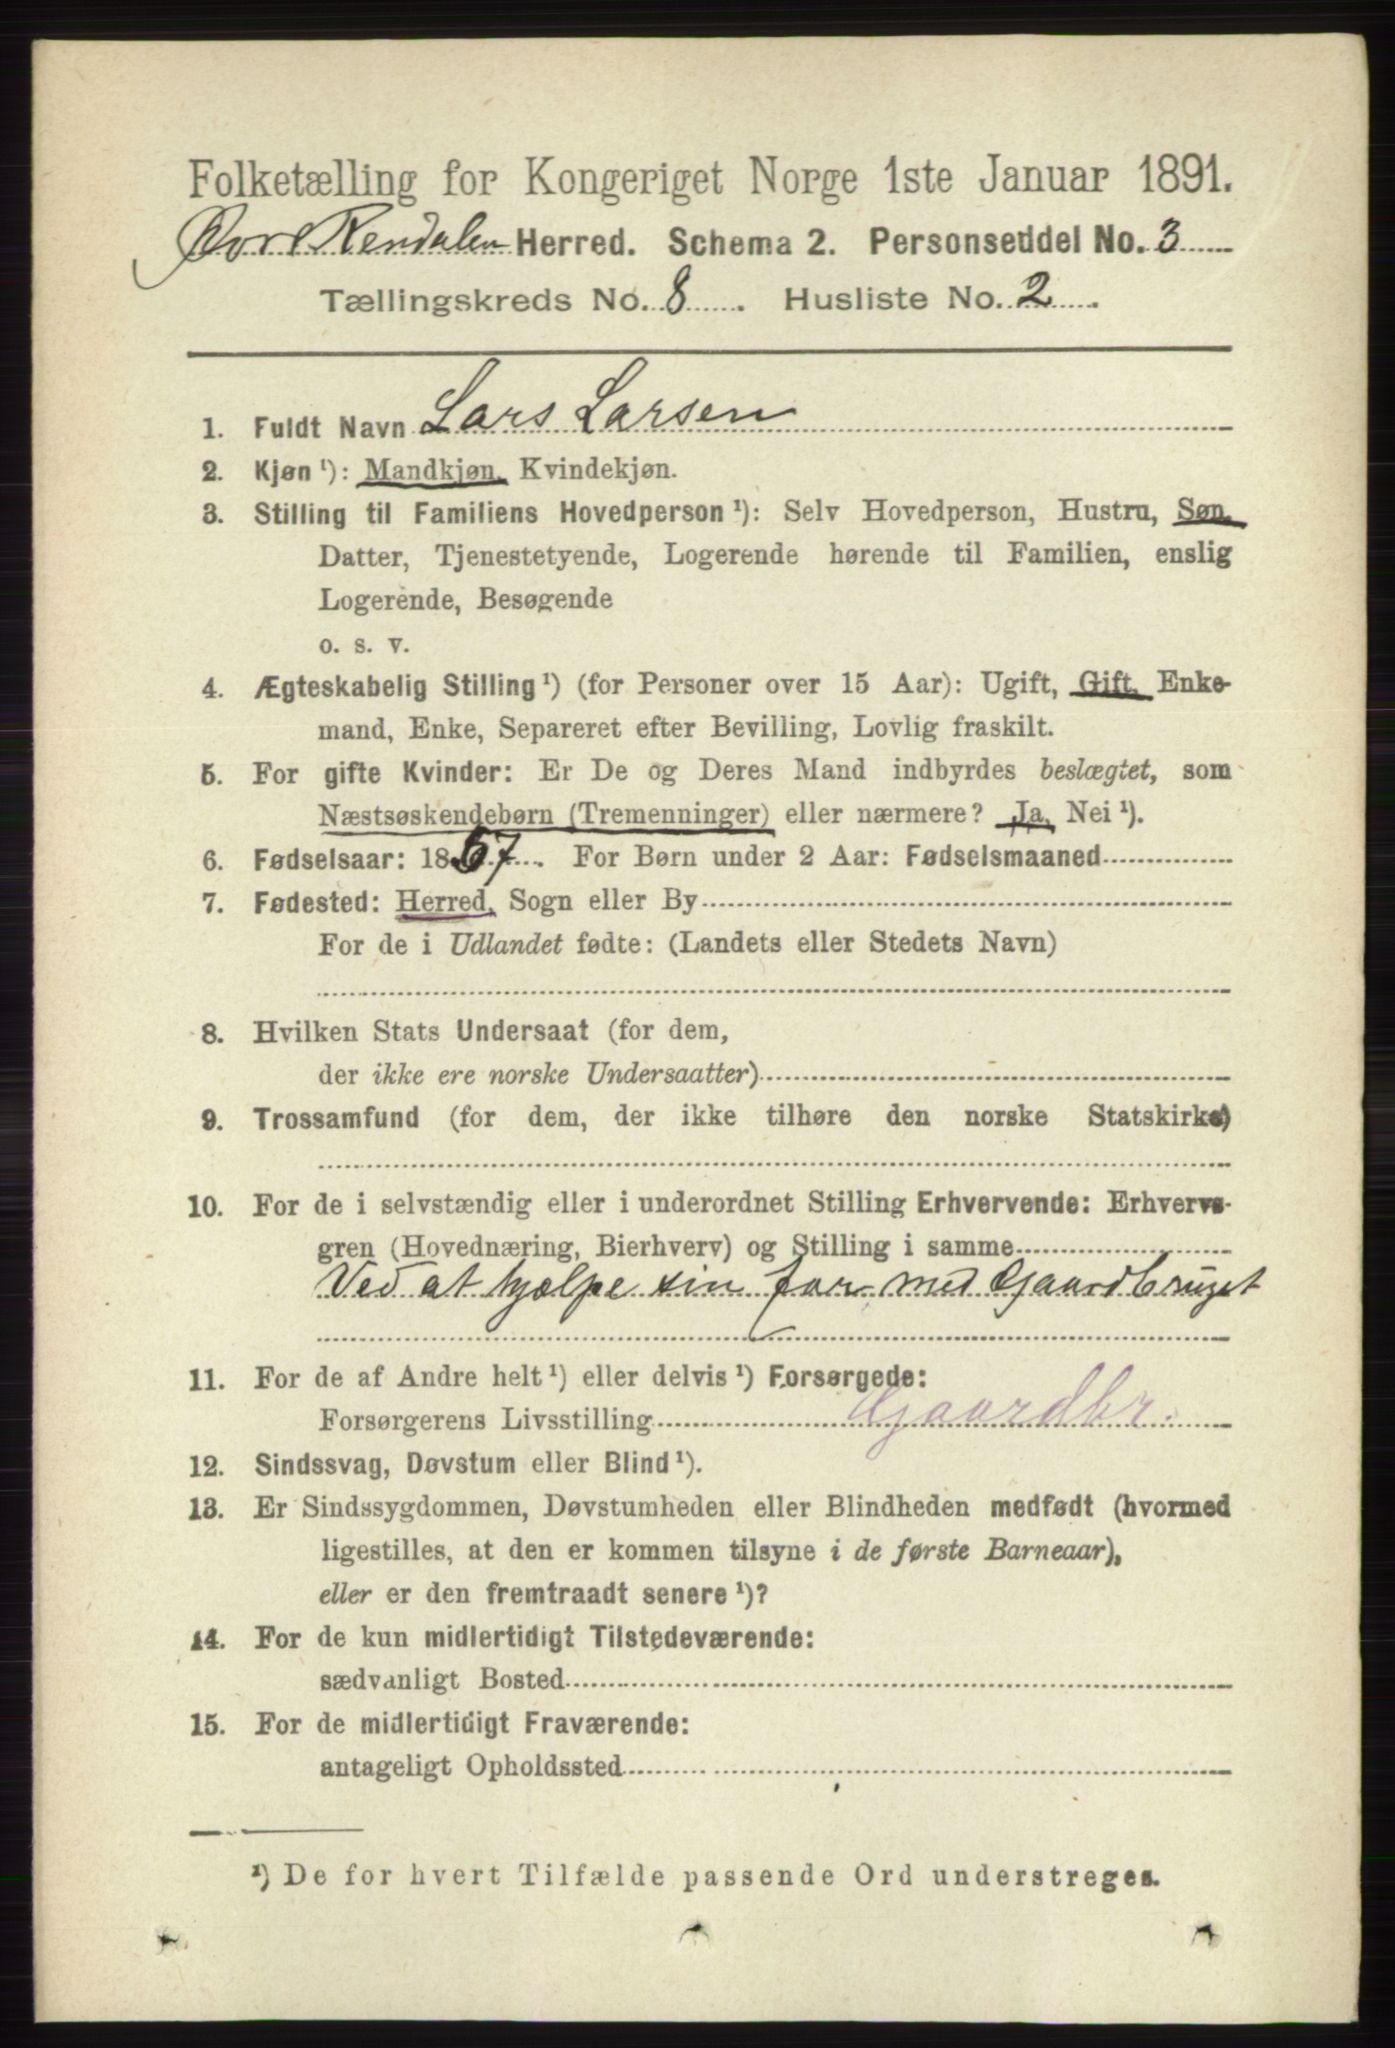 Folketælling for Kongeriget Norge 1ste Januar 1891.
Øvre Rendalen Herred. Schema 2. Personseddel No. 3
Tællingskreds No. 8. Husliste No. 2.
1. Fuldt Navn Lars Larsen
2. Kjøn ¹): Mandkjøn, Kvindekjøn.
3. Stilling til Familiens Hovedperson ¹): Selv Hovedperson, Hustru, Søn,
Datter, Tjenestetyende, Logerende hørende til Familien, enslig
Logerende, Besøgende
o. s. v.
4. Ægteskabelig Stilling ¹) (for Personer over 15 Aar): Ugift, Gift, Enke-
mand, Enke, Separeret efter Bevilling, Lovlig fraskilt.
5. For gifte Kvinder: Er De og Deres Mand indbyrdes beslægtet, som
Næstsøskendebørn (Tremenninger) eller nærmere? Ja, Nei ¹).
6. Fødselsaar: 1857. For Børn under 2 Aar: Fødselsmaaned
7. Fødested: Herred, Sogn eller By
For de i Udlandet fødte: (Landets eller Stedets Navn)
8. Hvilken Stats Undersaat (for dem,
der ikke ere norske Undersaatter)
9. Trossamfund (for dem, der ikke tilhøre den norske Statskirke)
10. For de i selvstændig eller i underordnet Stilling Erhvervende: Erhvervs-
gren (Hovednæring, Bierhverv) og Stilling i samme
Ved at hjælpe sin far med Gaardbruget
11. For de af Andre helt ¹) eller delvis ¹) Forsørgede:
Forsørgerens Livsstilling Gaardbr.
12. Sindssvag, Døvstum eller Blind ¹).
13. Er Sindssygdommen, Døvstumheden eller Blindheden medfødt (hvormed
ligestilles, at den er kommen tilsyne i de første Barneaar),
eller er den fremtraadt senere ¹)?
14. For de kun midlertidigt Tilstedeværende:
sædvanligt Bosted
15. For de midlertidigt Fraværende:
antageligt Opholdssted
¹) De for hvert Tilfælde passende Ord understreges.